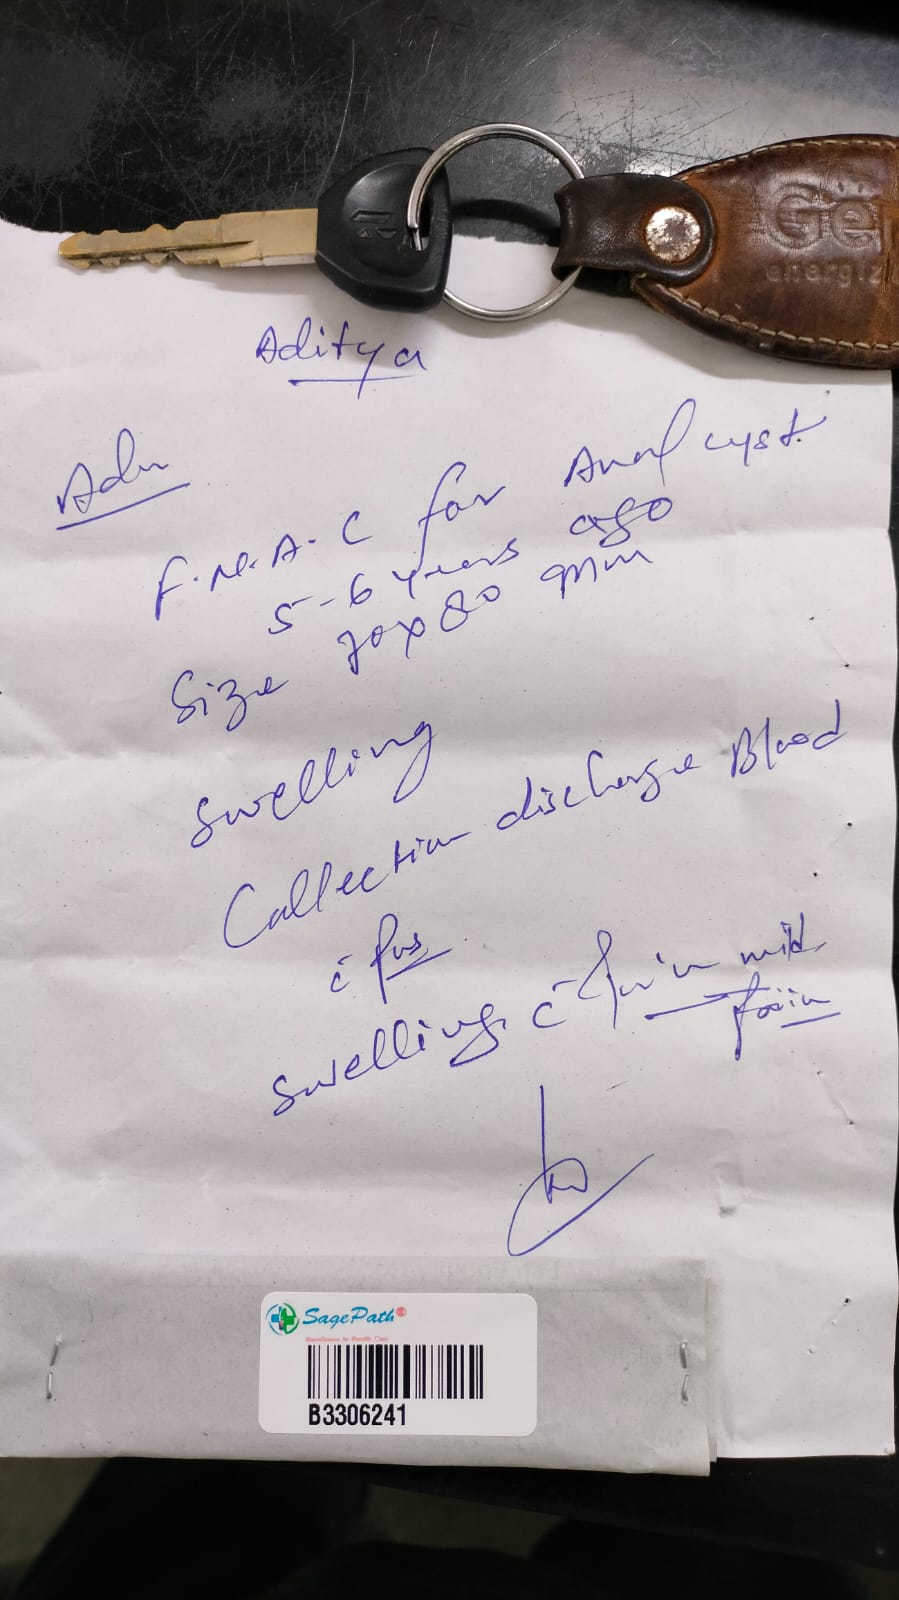 Ge
energiz
Aditya
Adv
F.N.A.C for Anal cyst.
5-6 years ago
Size 70x80 mm
swelling
Collection discharge Blood
c̄ pus
swelling c̄ pain mild
pain
SagePath
B3306241